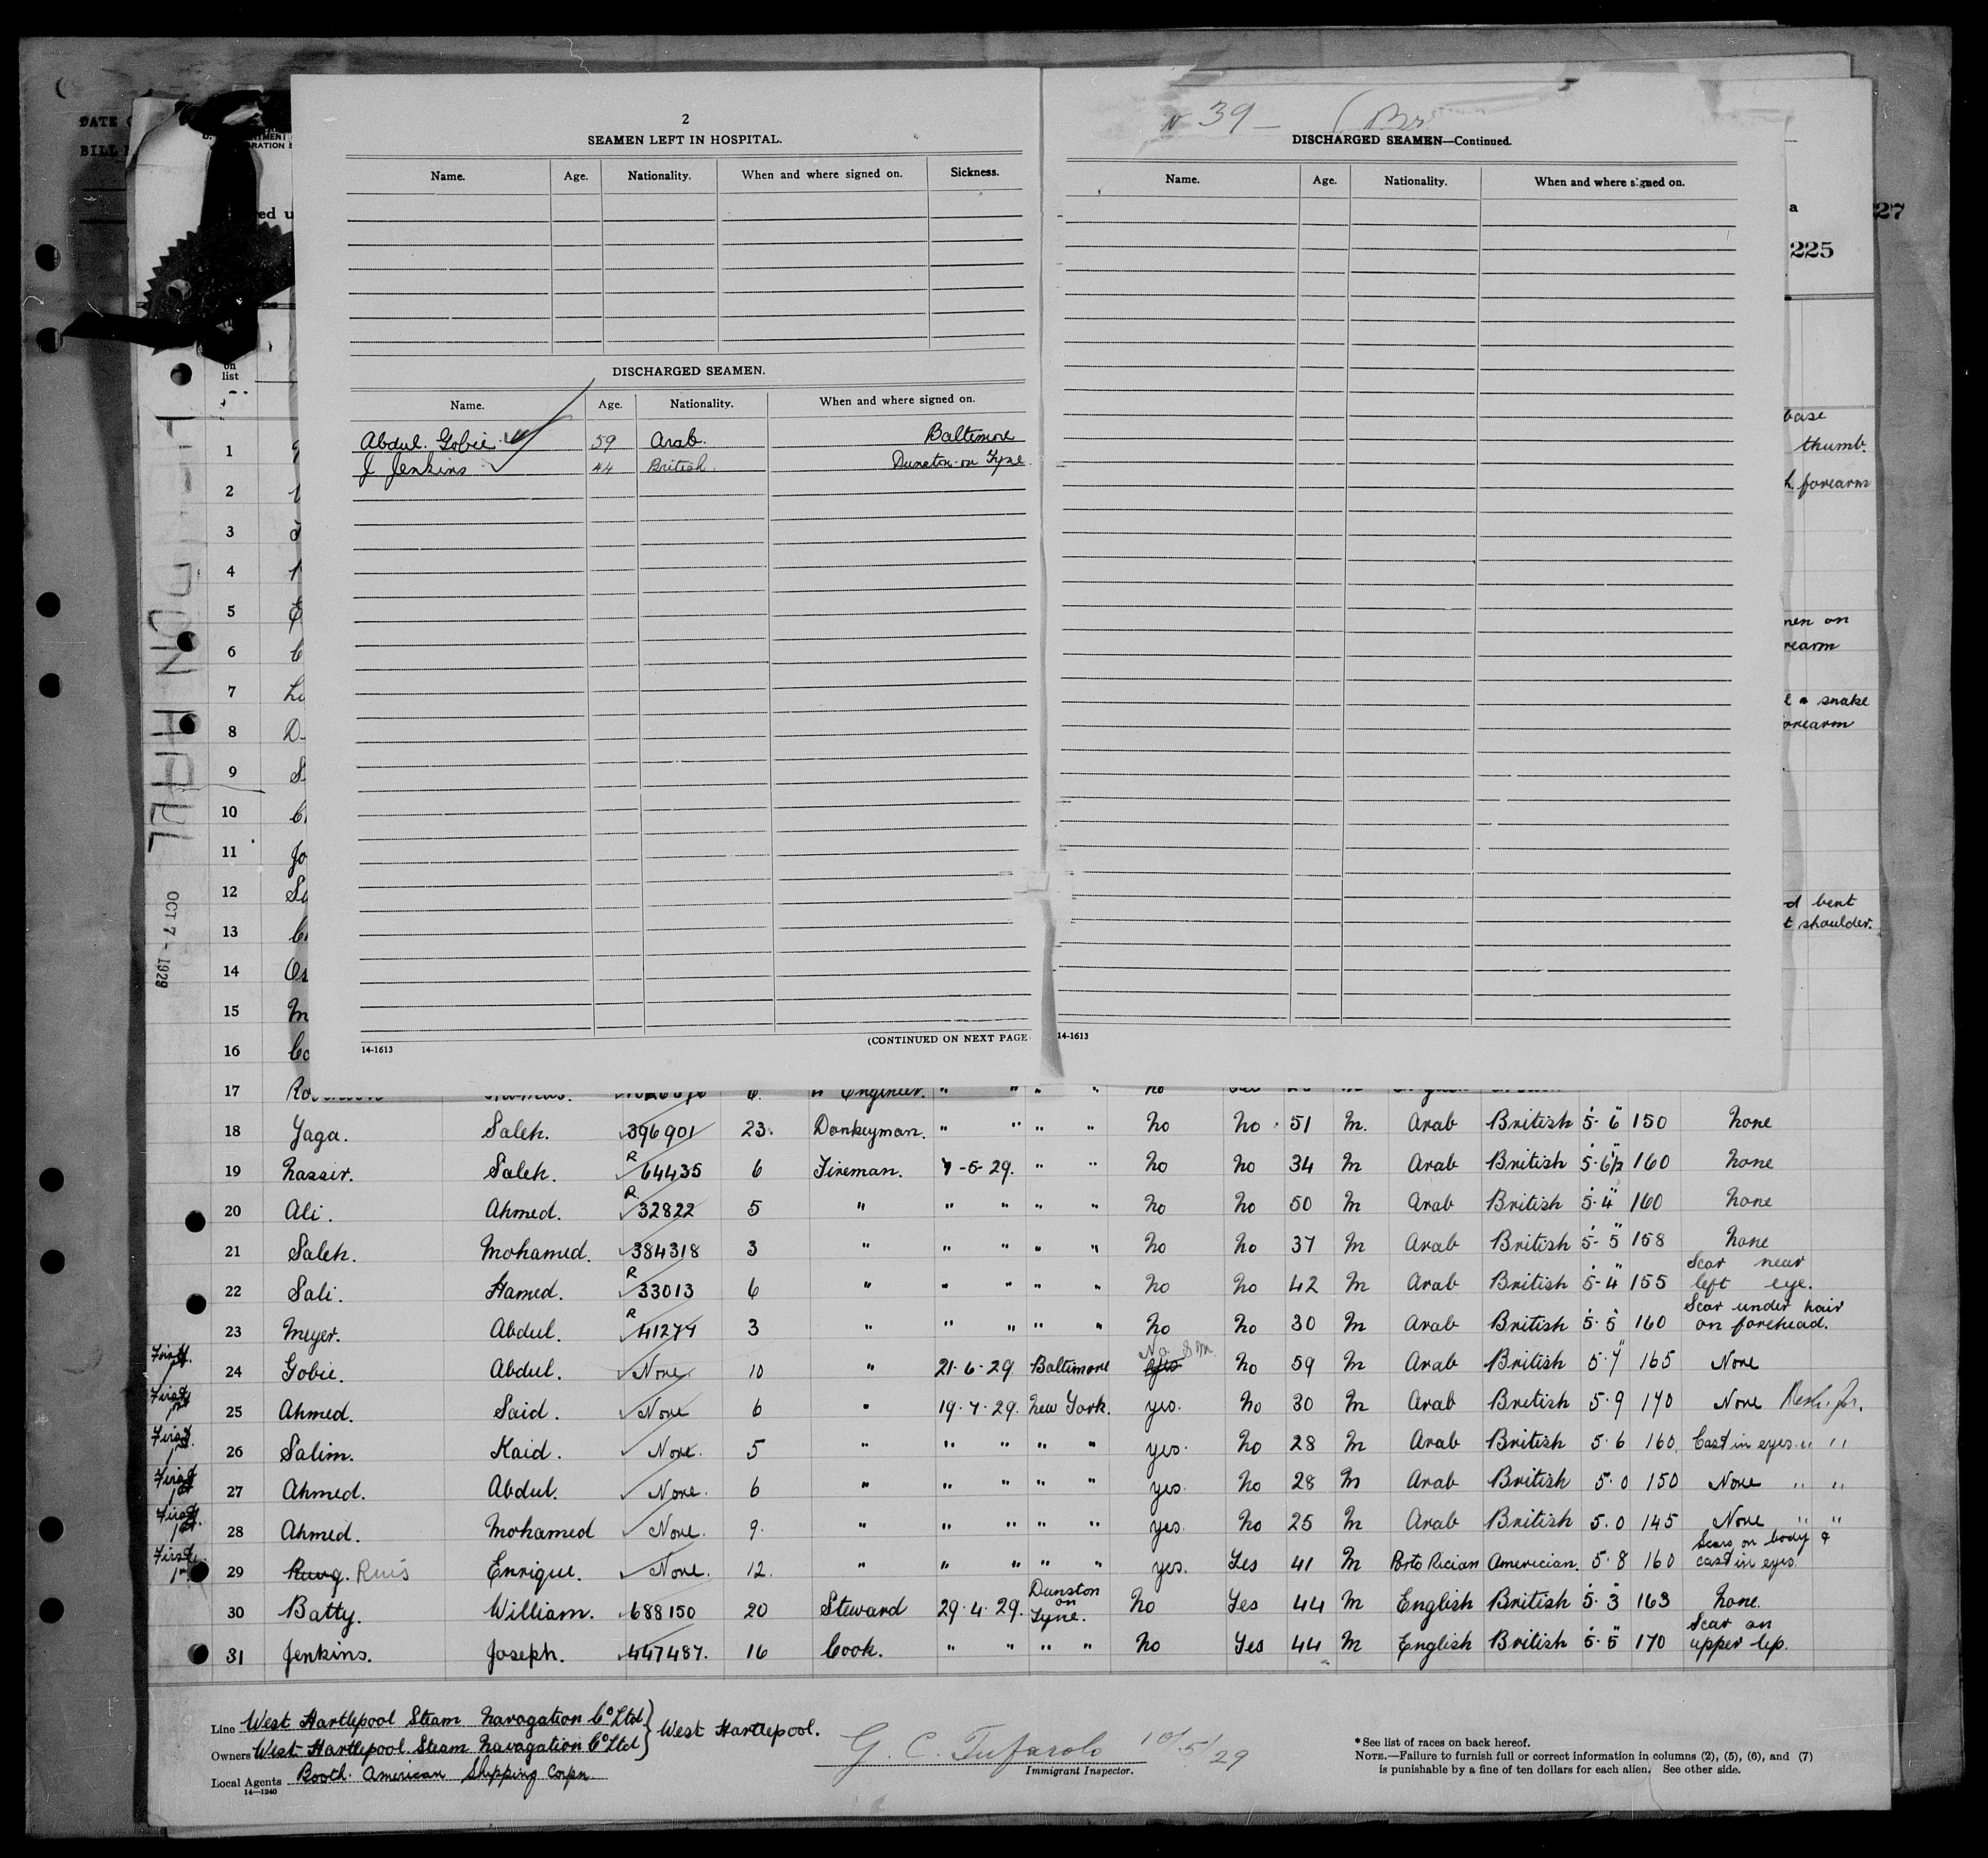 2
SEAMEN LEFT IN HOSPITAL.
Name. Age. Nationality. When and where signed on. Sickness.
DISCHARGED SEAMEN.
Name. Age. Nationality. When and where signed on.
Abdul. Gobie. 59 Arab. Baltimore
J Jenkins 44 British. Dunston-on Tyne
(CONTINUED ON NEXT PAGE
14-1613
39 -
DISCHARGED SEAMEN—Continued.
Name. Age. Nationality. When and where signed on.
14-1613
DATE
BILL
ed u
on
list
a
227
225
HAIL
OCT 7 - 1929
base
thumb.
h. forearm
men on
rearm
snake
orearm
d bent
t shoulder.
1
2
3
4
5
6
7
8
9
10
11
12
13
14
15
16
17 Engineer. " " " "
18 Yaga. Saleh. 396901 23. Donkeyman. " " " " No No 51 M. Arab British 5-6" 150 None
19 Nasser. Saleh. R 64435 6 Fireman. 7-5-29. " " No No 34 M Arab British 5-6½" 160 None
20 Ali. Ahmed. R 32822 5 " " " " " No No 50 M Arab British 5-4" 160 None
21 Saleh. Mohamed. 384318 3 " " " " " No No 37 M Arab British 5-5" 158 None
22 Sali. Hamed. R 33013 6 " " " " " No No 42 M Arab British 5-4" 155 Scar near left eye.
23 Meyer. Abdul. R 41277 3 " " " " " No No 30 M Arab British 5-5" 160 Scar under hair on forehead.
First. 24 Gobie. Abdul. None. 10 " 21-6-29 Baltimore yes No SM. No 59 M Arab British 5-7" 165 None
First 25 Ahmed. Said. None 6 " 19-7-29. New York. yes. No 30 M Arab British 5-9 170 None
First. 26 Salim. Kaid. None. 5 " " " " " yes. No 28 M Arab British 5-6 160. Cast in eyes " "
First 27 Ahmed. Abdul. None. 6 " " " " " yes. No 28 M Arab British 5-0 150 None " "
First. 28 Ahmed. Mohamed None. 9. " " " " " yes. No 25 M Arab British 5.0 145 None " "
First. 29 Ruis Enrique. None. 12. " " " " " yes. Yes 41 M Porto Rician Americian. 5-8 160 Scars on body & cast in eyes.
30 Batty. William. 688150 20 Steward 29-4-29. Dunston on Tyne. No Yes 44 M English British 5-3" 163 None.
31 Jenkins. Joseph. 447487. 16 Cook. " " " " No Yes 44 M English British 5-5" 170 Scar on upper lip.
Line West Hartlepool Steam Navagation Co Ltd } West Hartlepool.
Owners West Hartlepool Steam Navagation Co Ltd
Local Agents Booth American Shipping Corpn
14—1240
G. C. Tufarolo 10/5/29
Immigrant Inspector.
* See list of races on back hereof.
NOTE.—Failure to furnish full or correct information in columns (2), (5), (6), and (7)
is punishable by a fine of ten dollars for each alien. See other side.